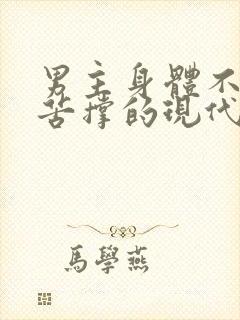 男主身體不
苦撐的現代
馬學燕